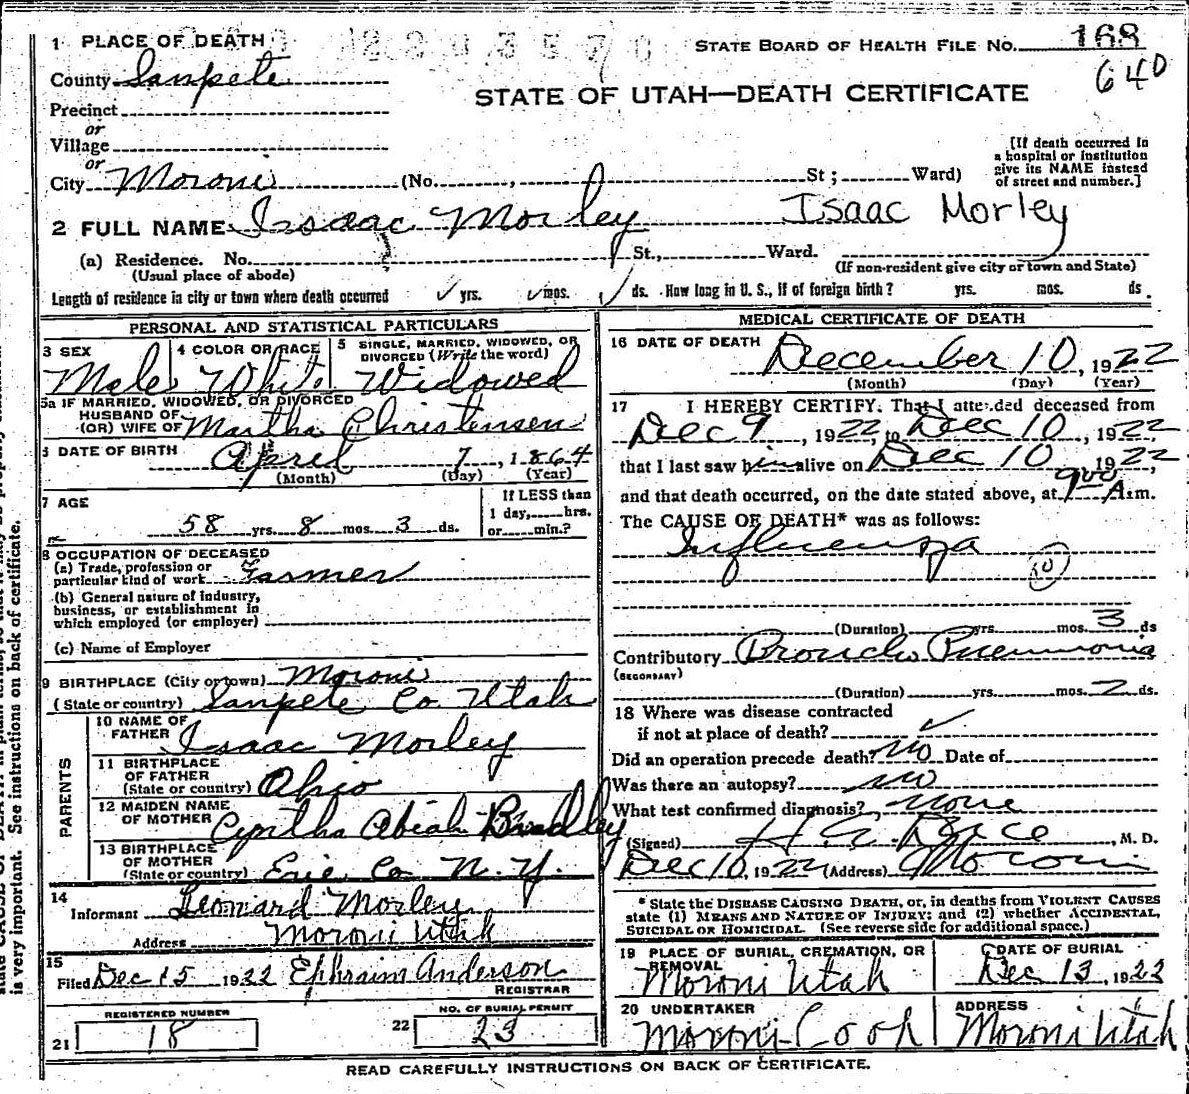 1 PLACE OF DEATH
STATE BOARD OF HEALTH FILE NO. 168
County Sanpete
640
STATE OF UTAH—DEATH CERTIFICATE
Precinct
or
Village
or
City Moroni (No. , St; Ward)
[If death occurred in a hospital or institution give its NAME instead of street and number.]
2 FULL NAME Isaac Morley Isaac Morley
(a) Residence. No. St., Ward.
(Usual place of abode) (If non-resident give city or town and State)
Length of residence in city or town where death occurred ✓ yrs. ✓ mos. ✓ ds. How long in U. S., if of foreign birth? yrs. mos. ds.
PERSONAL AND STATISTICAL PARTICULARS
3 SEX 4 COLOR OR RACE 5 SINGLE, MARRIED, WIDOWED, OR DIVORCED (Write the word)
Male White Widowed
5a IF MARRIED, WIDOWED, OR DIVORCED
HUSBAND OF
(OR) WIFE OF Martha Christensen
6 DATE OF BIRTH April 7, 1864
(Month) (Day) (Year)
7 AGE If LESS than
1 day, hrs.
58 yrs. 8 mos. 3 ds. or min.?
8 OCCUPATION OF DECEASED
(a) Trade, profession or
particular kind of work Farmer
(b) General nature of industry,
business, or establishment in
which employed (or employer)
(c) Name of Employer
9 BIRTHPLACE (City or town) Moroni
(State or country) Sanpete Co Utah
PARENTS
10 NAME OF
FATHER Isaac Morley
11 BIRTHPLACE
OF FATHER
(State or country) Ohio
12 MAIDEN NAME
OF MOTHER Cyntha Abiah Bradley
13 BIRTHPLACE
OF MOTHER
(State or country) Erie Co N. Y.
14
Informant Leonard Morley
Address Moroni Utah
15
Filed Dec 15 1922 Ephraim Anderson
REGISTRAR
REGISTERED NUMBER NO. OF BURIAL PERMIT
21 18 22 23
MEDICAL CERTIFICATE OF DEATH
16 DATE OF DEATH December 10, 1922
(Month) (Day) (Year)
17 I HEREBY CERTIFY, That I attended deceased from
Dec 9, 1922, to Dec 10, 1922
that I last saw him alive on Dec 10 1922,
and that death occurred, on the date stated above, at 9 00 A.m.
The CAUSE OF DEATH* was as follows:
Influenza
10
(Duration) yrs. mos. 3 ds
Contributory Broncho Pneumonia
(SECONDARY)
(Duration) yrs. mos. 2 ds.
18 Where was disease contracted
if not at place of death? ✓
Did an operation precede death? no Date of
Was there an autopsy? no
What test confirmed diagnosis? none
(Signed) H. , M. D.
Dec 10, 1922 (Address) Moroni
* State the DISEASE CAUSING DEATH, or, in deaths from VIOLENT CAUSES
state (1) MEANS AND NATURE OF INJURY; and (2) whether ACCIDENTAL,
SUICIDAL OR HOMICIDAL. (See reverse side for additional space.)
19 PLACE OF BURIAL, CREMATION, OR REMOVAL DATE OF BURIAL
Moroni Utah Dec 13, 1922
20 UNDERTAKER ADDRESS
Moroni Co oh Moroni Utah
READ CAREFULLY INSTRUCTIONS ON BACK OF CERTIFICATE.
is very important. See instructions on back of certificate.